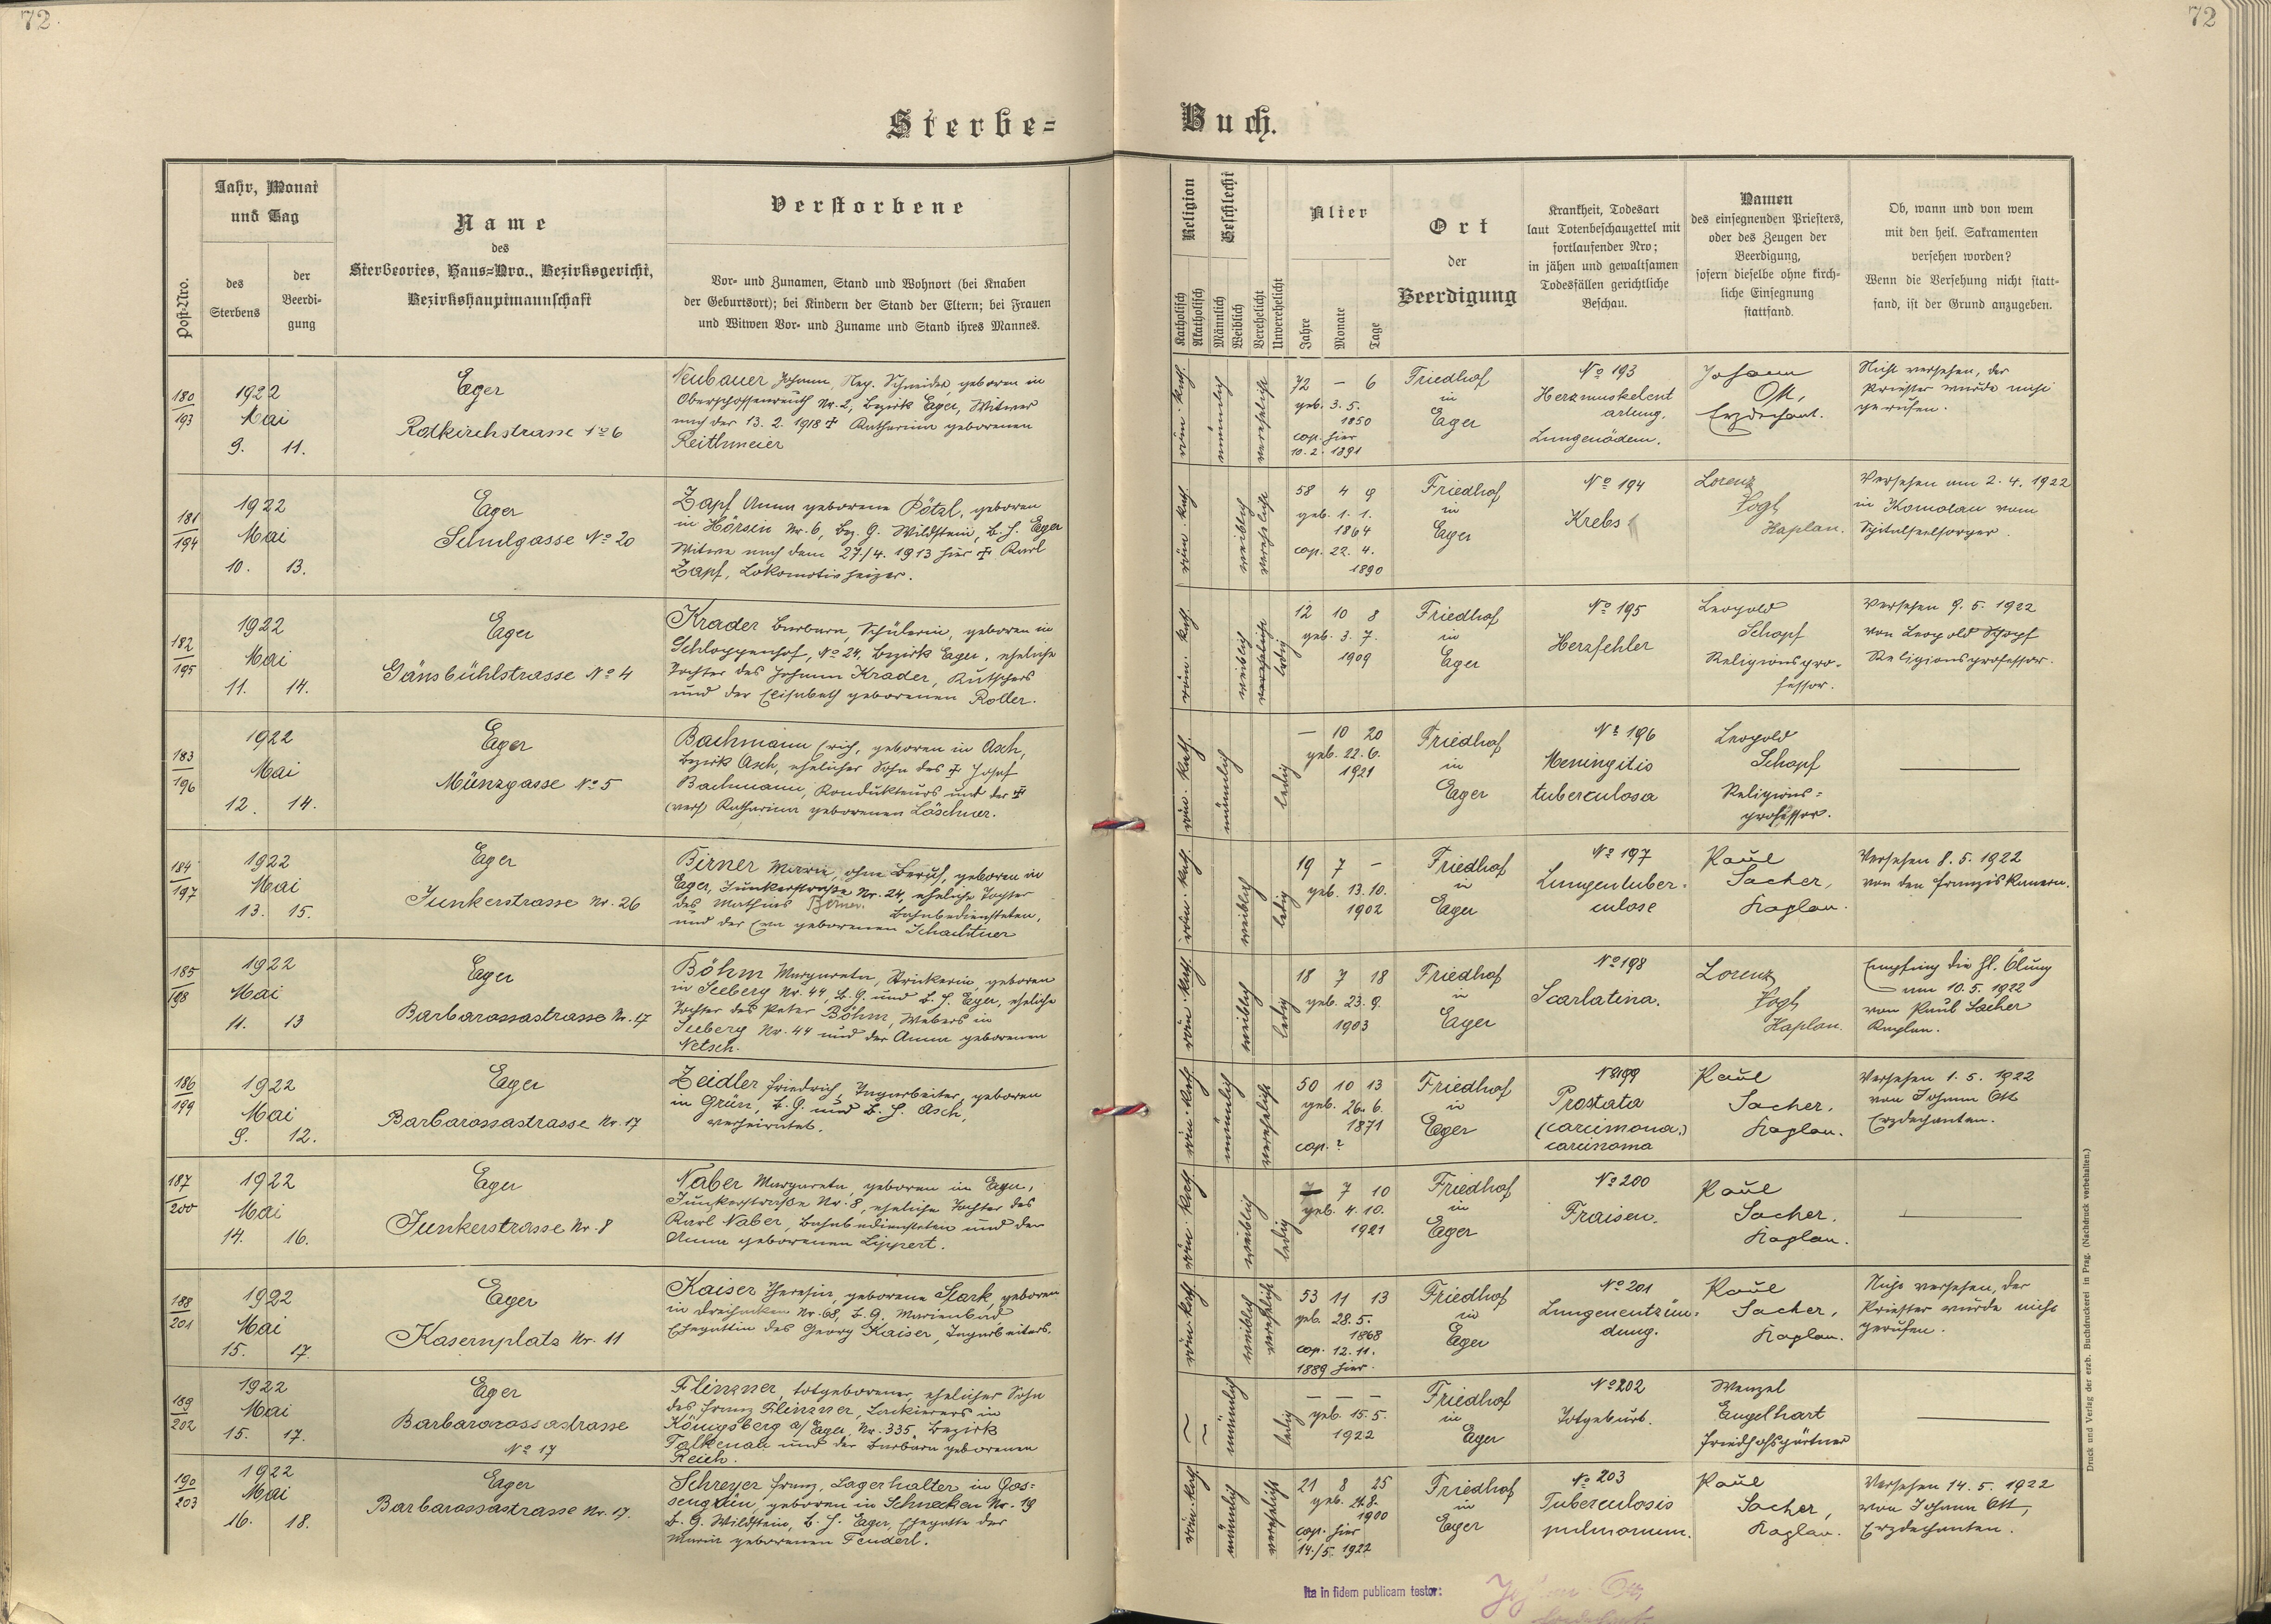 72.
72
Sterbe=
Buch.
Post-Nro.
Jahr, Monat
und Tag
des
Sterbens
der
Beerdi-
gung
Name
des
Sterbeortes, Haus-Nro., Bezirksgericht,
Bezirkshauptmannschaft
Verstorbene
Vor- und Zunamen, Stand und Wohnort (bei Knaben
der Geburtsort); bei Kindern der Stand der Eltern; bei Frauen
und Witwen Vor- und Zuname und Stand ihres Mannes.
Religion
Katholisch
Akatholisch
Geschlecht
Männlich
Weiblich
Verehelicht
Unverehelicht
Alter
Jahre
Monate
Tage
Ort
der
Beerdigung
Krankheit, Todesart
laut Totenbeschauzettel mit
fortlaufender Nro;
in jähen und gewaltsamen
Todesfällen gerichtliche
Beschau.
Namen
des einsegnenden Priesters,
oder des Zeugen der
Beerdigung,
sofern dieselbe ohne kirch-
liche Einsegnung
stattfand.
Ob, wann und von wem
mit den heil. Sakramenten
versehen worden?
Wenn die Versehung nicht statt-
fand, ist der Grund anzugeben.
180
193
1922
Mai
9. 11.
Eger
Rotkirchstrasse No 6
Neubauer Johann, Schneider, geboren in
Oberschossenreuth Nr. 2, Bezirk Eger, Witwer
nach der 13. 2. 1918 † Katharina geborenen
Reithmeier
röm. kath.
männlich
verehelicht
72 — 6
geb. 3. 5.
1850
cop. hier
10. 2. 1891
Friedhof
in
Eger
No 193
Herzmuskelent
artung.
Lungenödem.
Johann
Ott,
Erzdechant.
Nicht versehen, der
Priester wurde nicht
gerufen.
181
194
1922
Mai
10. 13.
Eger
Schulgasse No 20
Zapf Anna geborene Pötzl, geboren
in Hörsin Nr. 6, Bez. G. Wildstein, B. H. Eger
Witwe nach dem 27./4. 1913 hier † Karl
Zapf, Lokomotivheizer.
röm. kath.
weiblich
verehelicht
58 4 9
geb. 1. 1.
1864
cop. 22. 4.
1890
Friedhof
in
Eger
No 194
Krebs
Lorenz
Vogl
Kaplan.
Versehen am 2. 4. 1922
in Komotau vom
Spitalseelsorger.
182
195
1922
Mai
11. 14.
Eger
Gänsbühlstrasse No 4
Krader Barbara, Schülerin, geboren in
Schloppenhof, No 24, Bezirk Eger, eheliche
Tochter des Johann Krader, Kutschers
und der Elisabeth geborenen Roller.
röm. kath.
weiblich
verehelicht
ledig
12 10 8
geb. 3. 7.
1909
Friedhof
in
Eger
No 195
Herzfehler
Leopold
Schopf
Religionspro-
fessor.
Versehen 9. 5. 1922
von Leopold Schopf
Religionsprofessor.
183
196
1922
Mai
12. 14.
Eger
Münzgasse No 5
Bachmann Erich, geboren in Asch,
Bezirk Asch, ehelicher Sohn des † Josef
Bachmann, Kondukteurs und der †
Katharina geborenen Löschner.
röm. kath.
männlich
ledig
— 10 20
geb. 22. 6.
1921
Friedhof
in
Eger
No 196
Meningitis
tuberculosa
Leopold
Schopf
Religions=
professor.
184
197
1922
Mai
13. 15.
Eger
Junkerstrasse Nr. 26
Birner Maria, ohne Beruf, geboren in
Eger, Junkerstraße Nr. 24, eheliche Tochter
des Mathias Birner, Bahnbediensteten,
und der Eva geborenen Schachtner
röm. kath.
weiblich
ledig
19 7 —
geb. 13. 10.
1902
Friedhof
in
Eger
No 197
Lungentuber-
culose
Paul
Sacher,
Kaplan.
Versehen 8. 5. 1922
von den Franziskanern.
185
198
1922
Mai
11. 13
Eger
Barbarossastrasse Nr. 17
Böhm Margareta, Strickerin, geboren
in Seeberg Nr. 44, B. G. und B. H. Eger, eheliche
Tochter des Peter Böhm, Webers in
Seeberg Nr. 44 und der Anna geborenen
Netsch.
röm. kath.
weiblich
ledig
18 7 18
geb. 23. 9.
1903
Friedhof
in
Eger
No 198
Scarlatina.
Lorenz
Vogl
Kaplan.
Empfing die hl. Ölung
am 10. 5. 1922
von Paul Sacher
Kaplan.
186
199
1922
Mai
9. 12.
Eger
Barbarossastrasse Nr. 17
Zeidler Friedrich, Tagarbeiter, geboren
in Grün, B. G. und B. H. Asch,
verheiratet.
röm. kath.
männlich
verehelicht
50 10 13
geb. 26. 6.
1871
cop. ?
Friedhof
in
Eger
No 199
Prostata
(carcimona.)
carcinoma
Paul
Sacher,
Kaplan.
Versehen 1. 5. 1922
von Johann Ott
Erzdechanten.
187
200
1922
Mai
14. 16.
Eger
Junkerstrasse Nr. 8
Naber Margareta, geboren in Eger,
Junkerstraße Nr. 8, eheliche Tochter des
Karl Naber, Bahnbediensteten und der
Anna geborenen Lippert.
röm. kath.
weiblich
ledig
— 7 10
geb. 4. 10.
1921
Friedhof
in
Eger
No 200
Fraisen.
Paul
Sacher.
Kaplan.
188
201
1922
Mai
15. 17.
Eger
Kasernplatz Nr. 11
Kaiser Theresia, geborene Stark, geboren
in Dreihacken Nr. 68, B. G. Marienbad
Ehegattin des Georg Kaiser, Tagarbeiters.
röm. kath.
weiblich
verehelicht
53 11 13
geb. 28. 5.
1868
cop. 12. 11.
1889 hier.
Friedhof
in
Eger
No 201
Lungenentzün-
dung.
Paul
Sacher,
Kaplan.
Nicht versehen, der
Priester wurde nicht
gerufen.
189
202
1922
Mai
15. 17.
Eger
Barbarorossastrasse
No 17
Flinzner, totgeborener, ehelicher Sohn
des Franz Flinzner, Lackierers in
Königsberg a/ Eger, Nr. 335, Bezirk
Falkenau und der Barbara geborenen
Reich.
männlich
ledig
— — —
geb. 15. 5.
1922
Friedhof
in
Eger
No 202
Totgeburt.
Wenzel
Engelhart
Friedhofsgärtner
190
203
1922
Mai
16. 18.
Eger
Barbarossastrasse Nr. 17.
Schreyer Franz, Lagerhalter in Gos=
sengrün, geboren in Schnecken Nr. 19
B. G. Wildstein, B. H. Eger, Ehegatte der
Maria geborenen Feuderl.
röm. kath.
männlich
verehelicht
21 8 25
geb. 21. 8.
1900
cop. hier
14./5. 1922
Friedhof
in
Eger
No 203
Tuberculosis
pulmonum.
Paul
Sacher,
Kaplan.
Versehen 14. 5. 1922
von Johann Ott,
Erzdechanten.
Ita in fidem publicam testor:
Johann Ott,
Druck und Verlag der erzb. Buchdruckerei in Prag. (Nachdruck vorbehalten.)